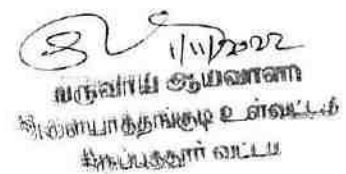 1/11/2022
வருவாய் ஆய்வாளர்
இளையாத்தங்குடி உள்வட்டம்
திருப்பத்தூர் வட்டம்